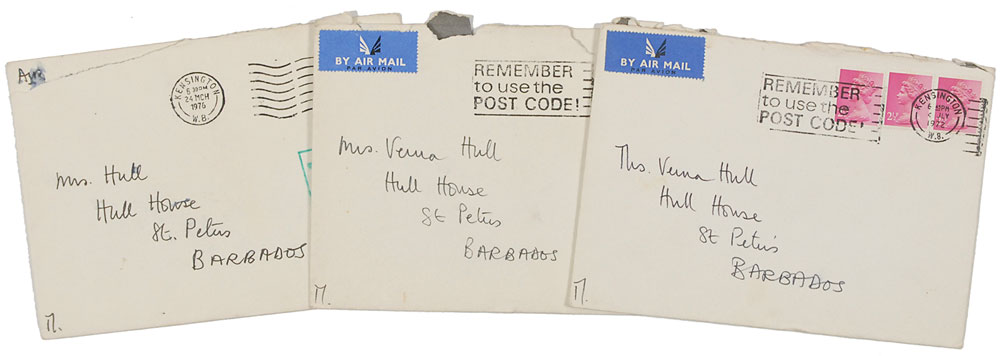 AIR
KENSINGTON
6 30PM
24 MCH
1976
W.8.
Mrs. Hull
Hull House
St. Peters
BARBADOS
M.
BY AIR MAIL
PAR AVION
REMEMBER
to use the
POST CODE!
Mrs. Verna Hull
Hull House
St Peters
BARBADOS
M.
BY AIR MAIL
PAR AVION
REMEMBER
to use the
POST CODE!
2½
KENSINGTON
JLY
1972
W.8.
Mrs. Verna Hull
Hull House
St Peter's
BARBADOS
M.